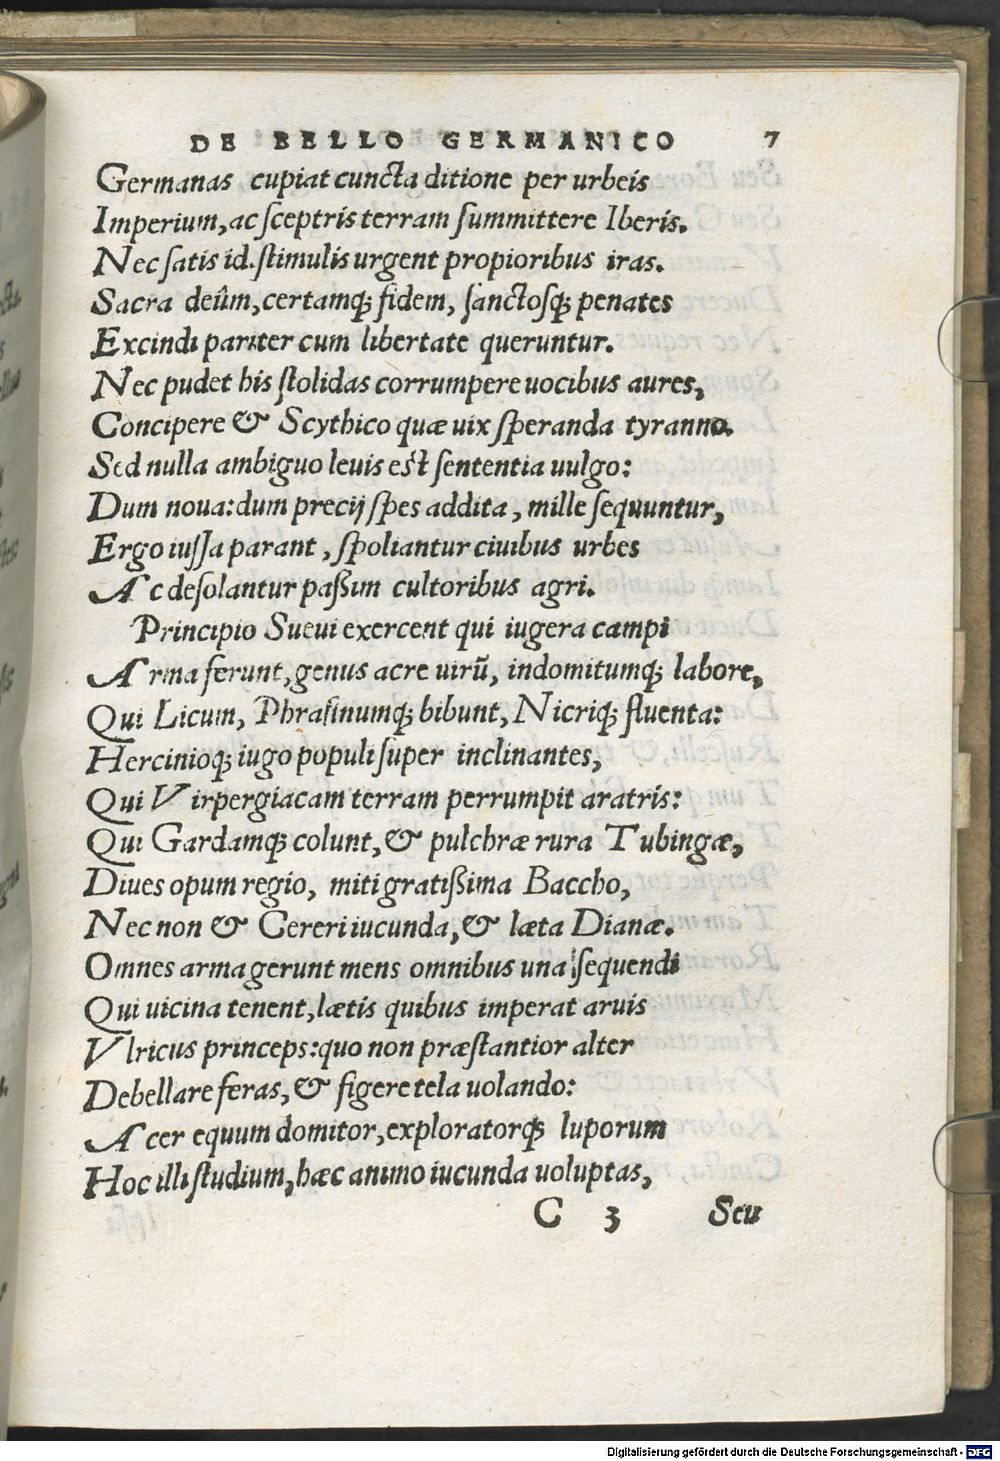 DE BELLO GERMANICO 7
Germanas cupiat cuncta ditione per urbeis
Imperium, ac sceptris terram summittere Iberis.
Nec satis id. stimulis urgent propioribus iras.
Sacra deûm, certamq; fidem, sanctosq; penates
Excindi pariter cum libertate queruntur.
Nec pudet his stolidas corrumpere uocibus aures,
Concipere & Scythico quæ uix speranda tyranno.
Sed nulla ambiguo leuis est sententia uulgo:
Dum noua: dum precij spes addita, mille sequuntur,
Ergo iussa parant, spoliantur ciuibus urbes
Ac desolantur paßim cultoribus agri.
Principio Sueui exercent qui iugera campi
Arma ferunt, genus acre uirũ, indomitumq; labore,
Qui Licum, Phrasinumq; bibunt, Nicriq; fluenta:
Hercinioq; iugo populi super inclinantes,
Qui Virpergiacam terram perrumpit aratris:
Qui Gardamq; colunt, & pulchræ rura Tubingæ,
Diues opum regio, miti gratißima Baccho,
Nec non & Cereri iucunda, & læta Dianæ.
Omnes arma gerunt mens omnibus una sequendi
Qui uicina tenent, lætis quibus imperat aruis
Vlricus princeps: quo non præstantior alter
Debellare feras, & figere tela uolando:
Acer equum domitor, exploratorq; luporum
Hoc illi studium, hæc animo iucunda uoluptas,
C 3 Seu
Digitalisierung gefördert durch die Deutsche Forschungsgemeinschaft - DFG